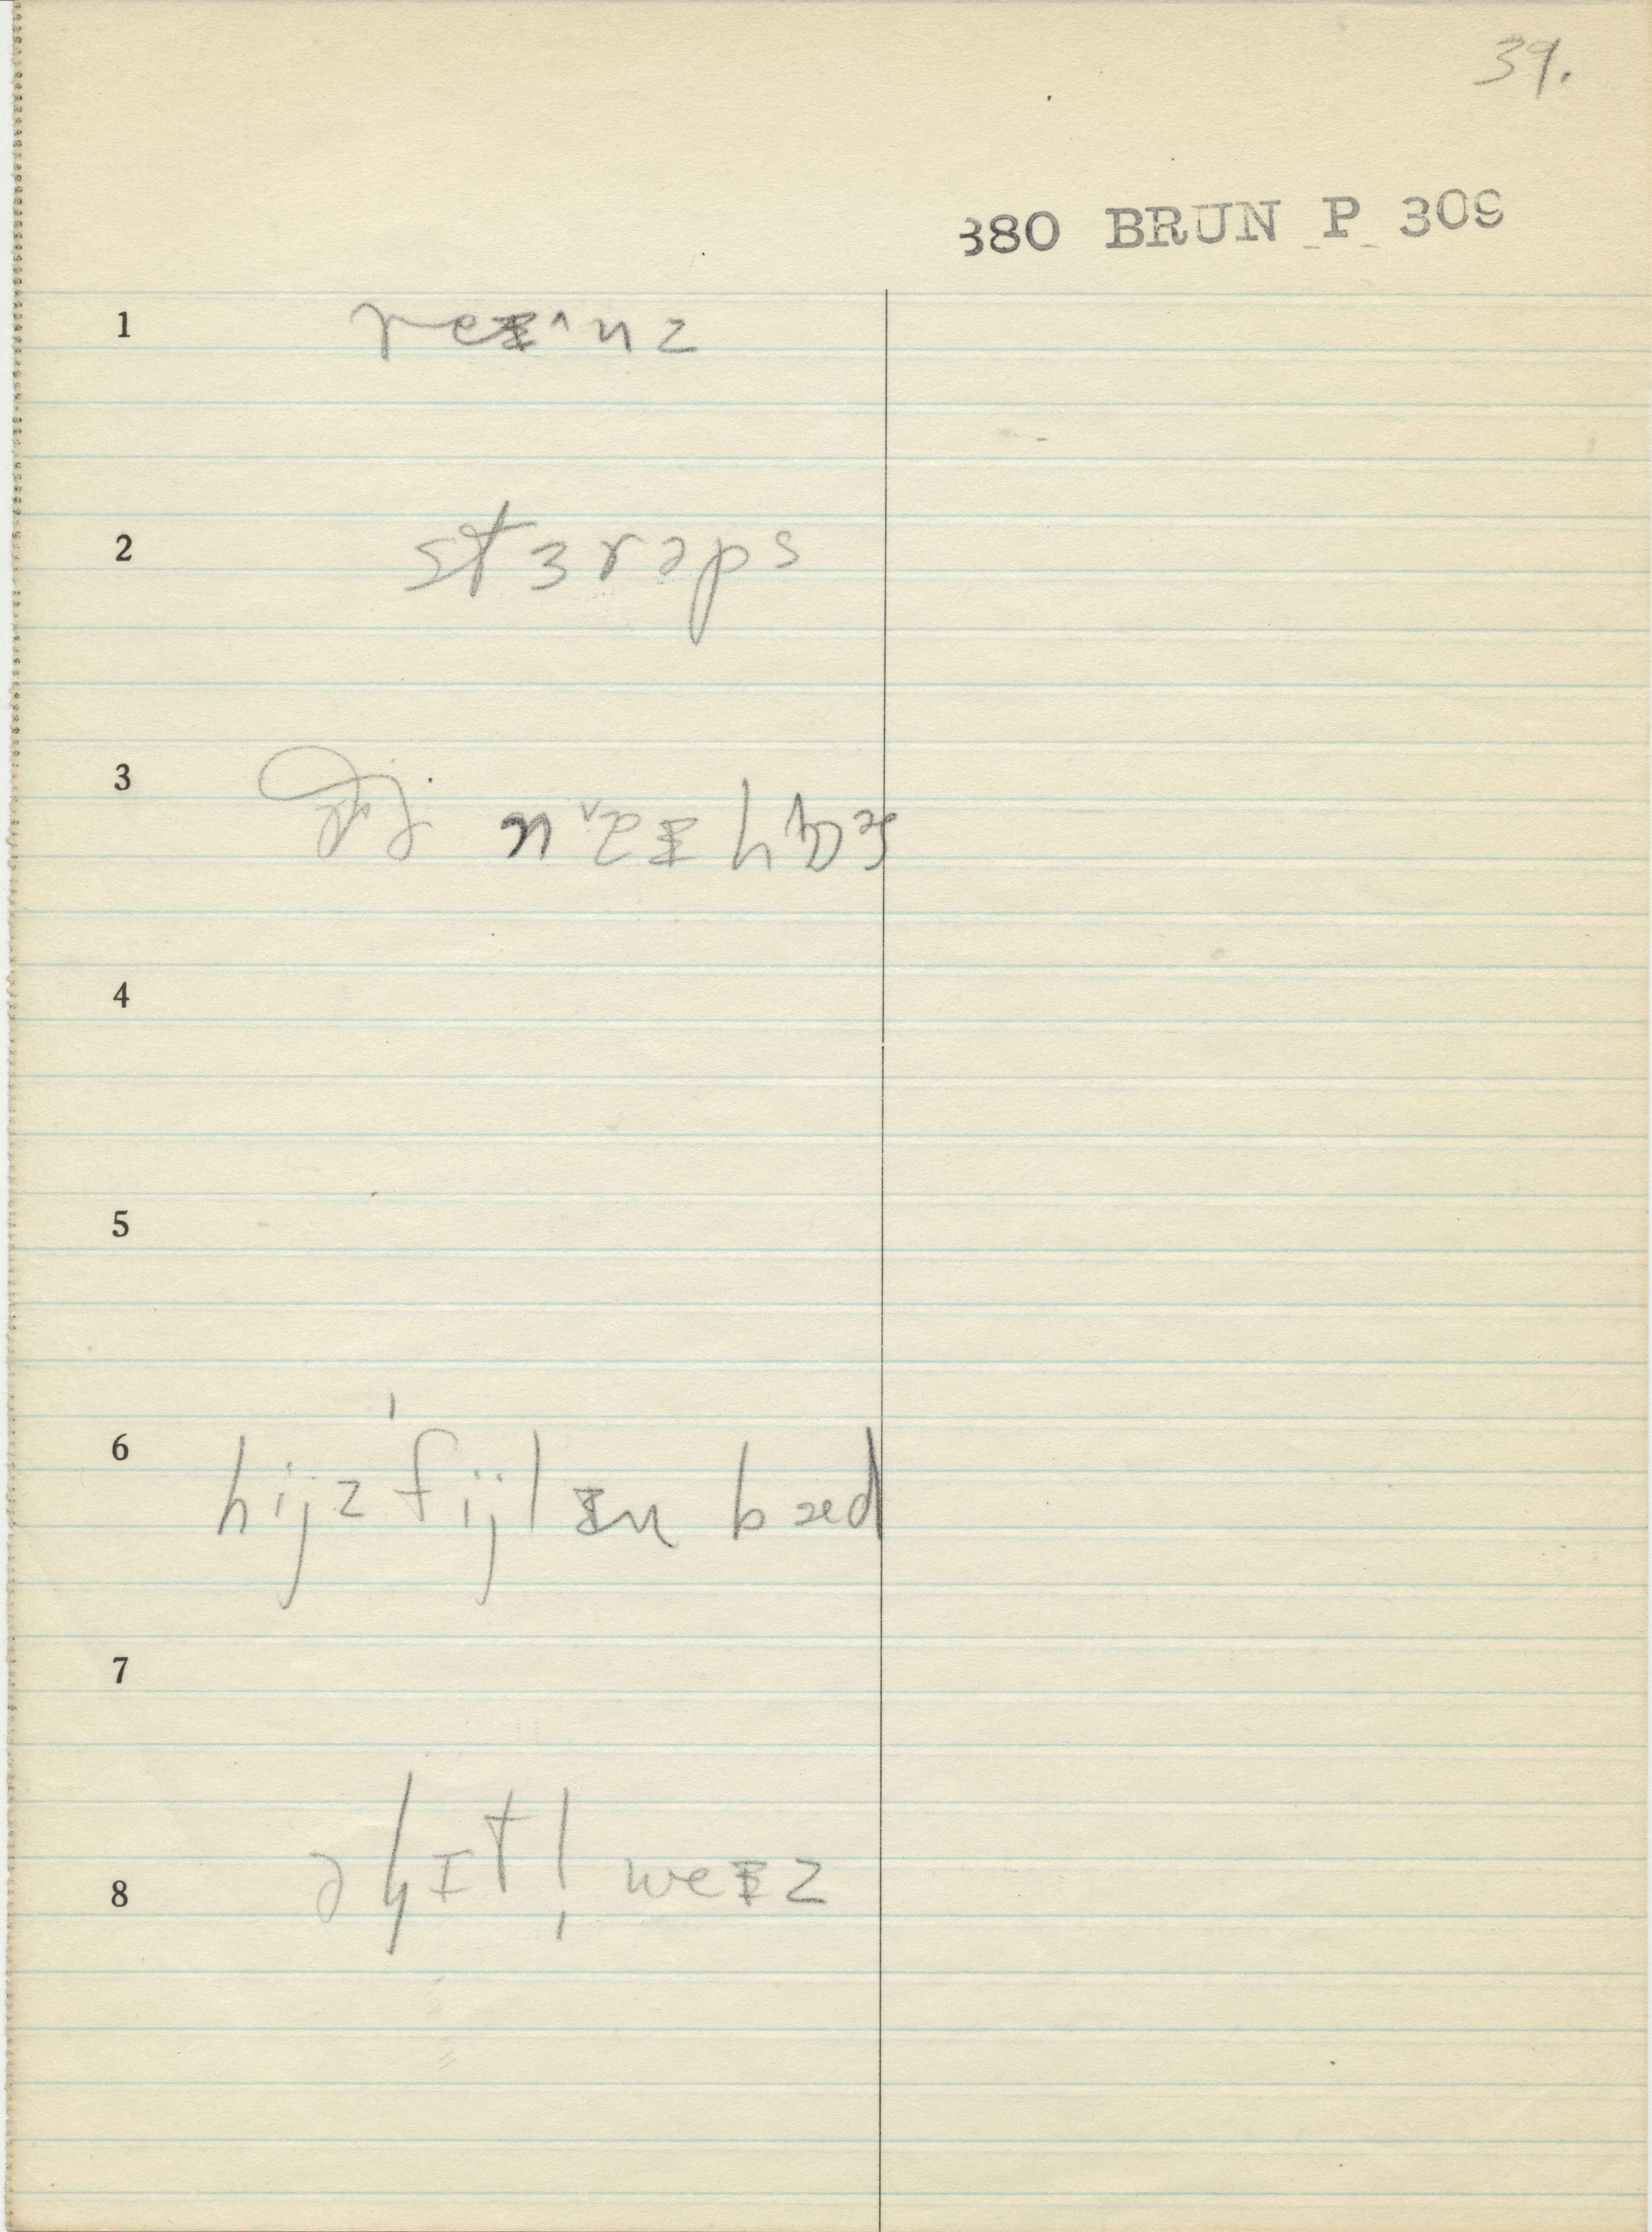 39.
380 BRUN P 309
1 reᵻ^nz
2 stɜrəps
3 n˅eᵻ
4
5
6 hijz'fijlᵻn bæd
7
8 əɧɪtl̩ weᵻz